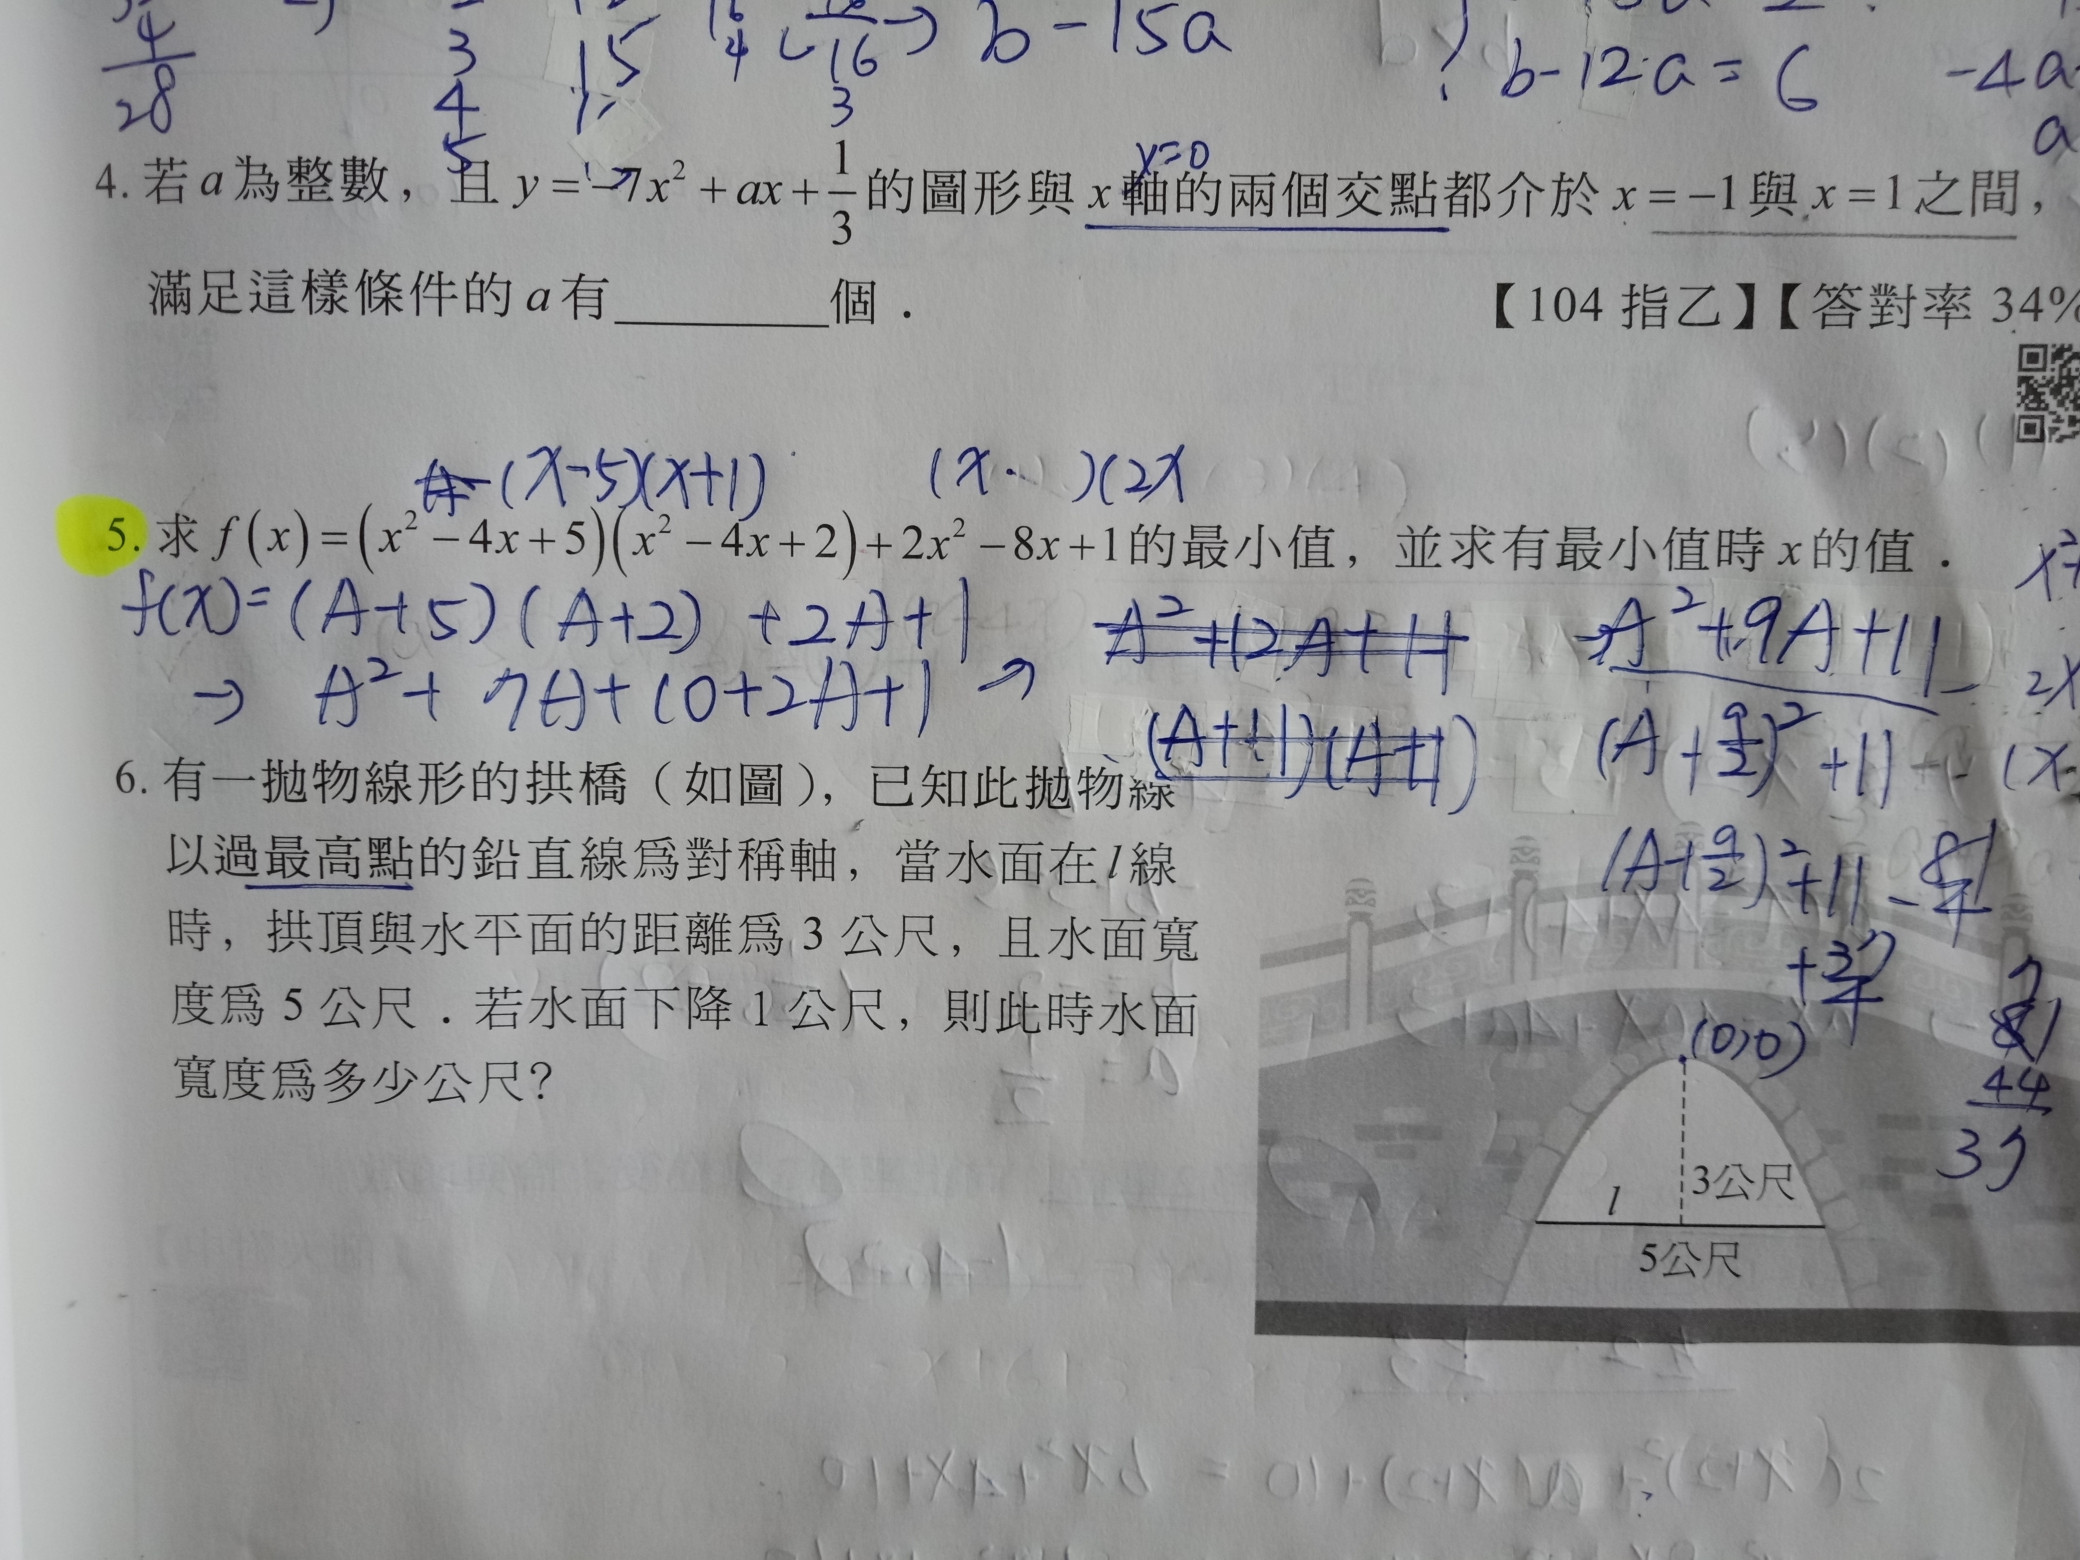 28
3
4
5
15
16
4
16
3
→ b-15a
b-12a=6
-4a
a
y=0
4. 若 a 為整數，且 y = -7x² + ax + 1/3 的圖形與 x 軸的兩個交點都介於 x = -1 與 x = 1 之間，
滿足這樣條件的 a 有________個．
【104 指乙】【答對率 34%
(x-5)(x+1)
(x- )(2x
5. 求 f(x) = (x² - 4x + 5)(x² - 4x + 2) + 2x² - 8x + 1 的最小值，並求有最小值時 x 的值．
f(x)= (A+5)(A+2) +2A+1
A²+12A+11
→A²+9A+11
→ A²+7A+10+2A+1 →
(A+11)(A+1)
(A+9/2)²+11-
2x
(x-
6. 有一拋物線形的拱橋（如圖），已知此拋物線
以過最高點的鉛直線為對稱軸，當水面在 l 線
時，拱頂與水平面的距離為 3 公尺，且水面寬
度為 5 公尺．若水面下降 1 公尺，則此時水面
寬度為多少公尺？
(A+9/2)²+11-81/4
+37/4
(0,0)
7
81
44
37
3公尺
l
5公尺